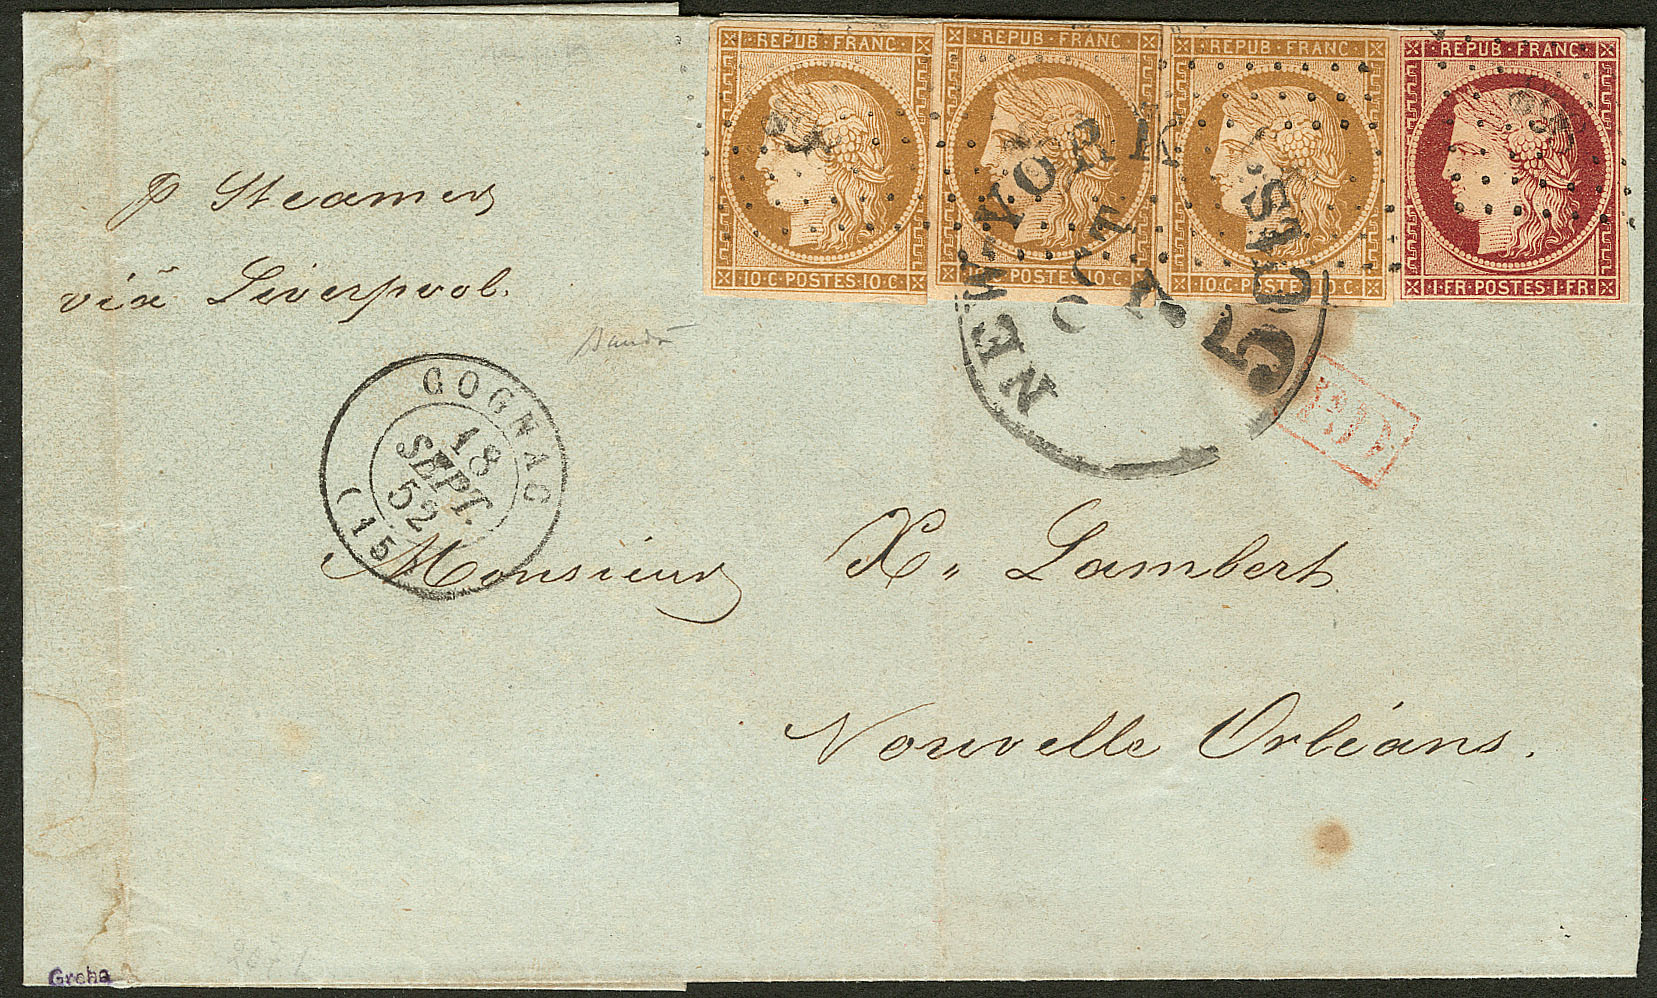 REPUB FRANC
10·C·POSTES·10·C
REPUB FRANC
POSTES·10·C
REPUB FRANC
10·C·POSTES·10·C
REPUB FRANC
1·FR·POSTES·1·FR
NEW-YORK
OCT
4
5 CTS
p Steamer
viâ Liverpool.
COGNAC
18
SEPT.
52
(15
P.P.
Monsieur X,, Lambert
Nouvelle Orléans.